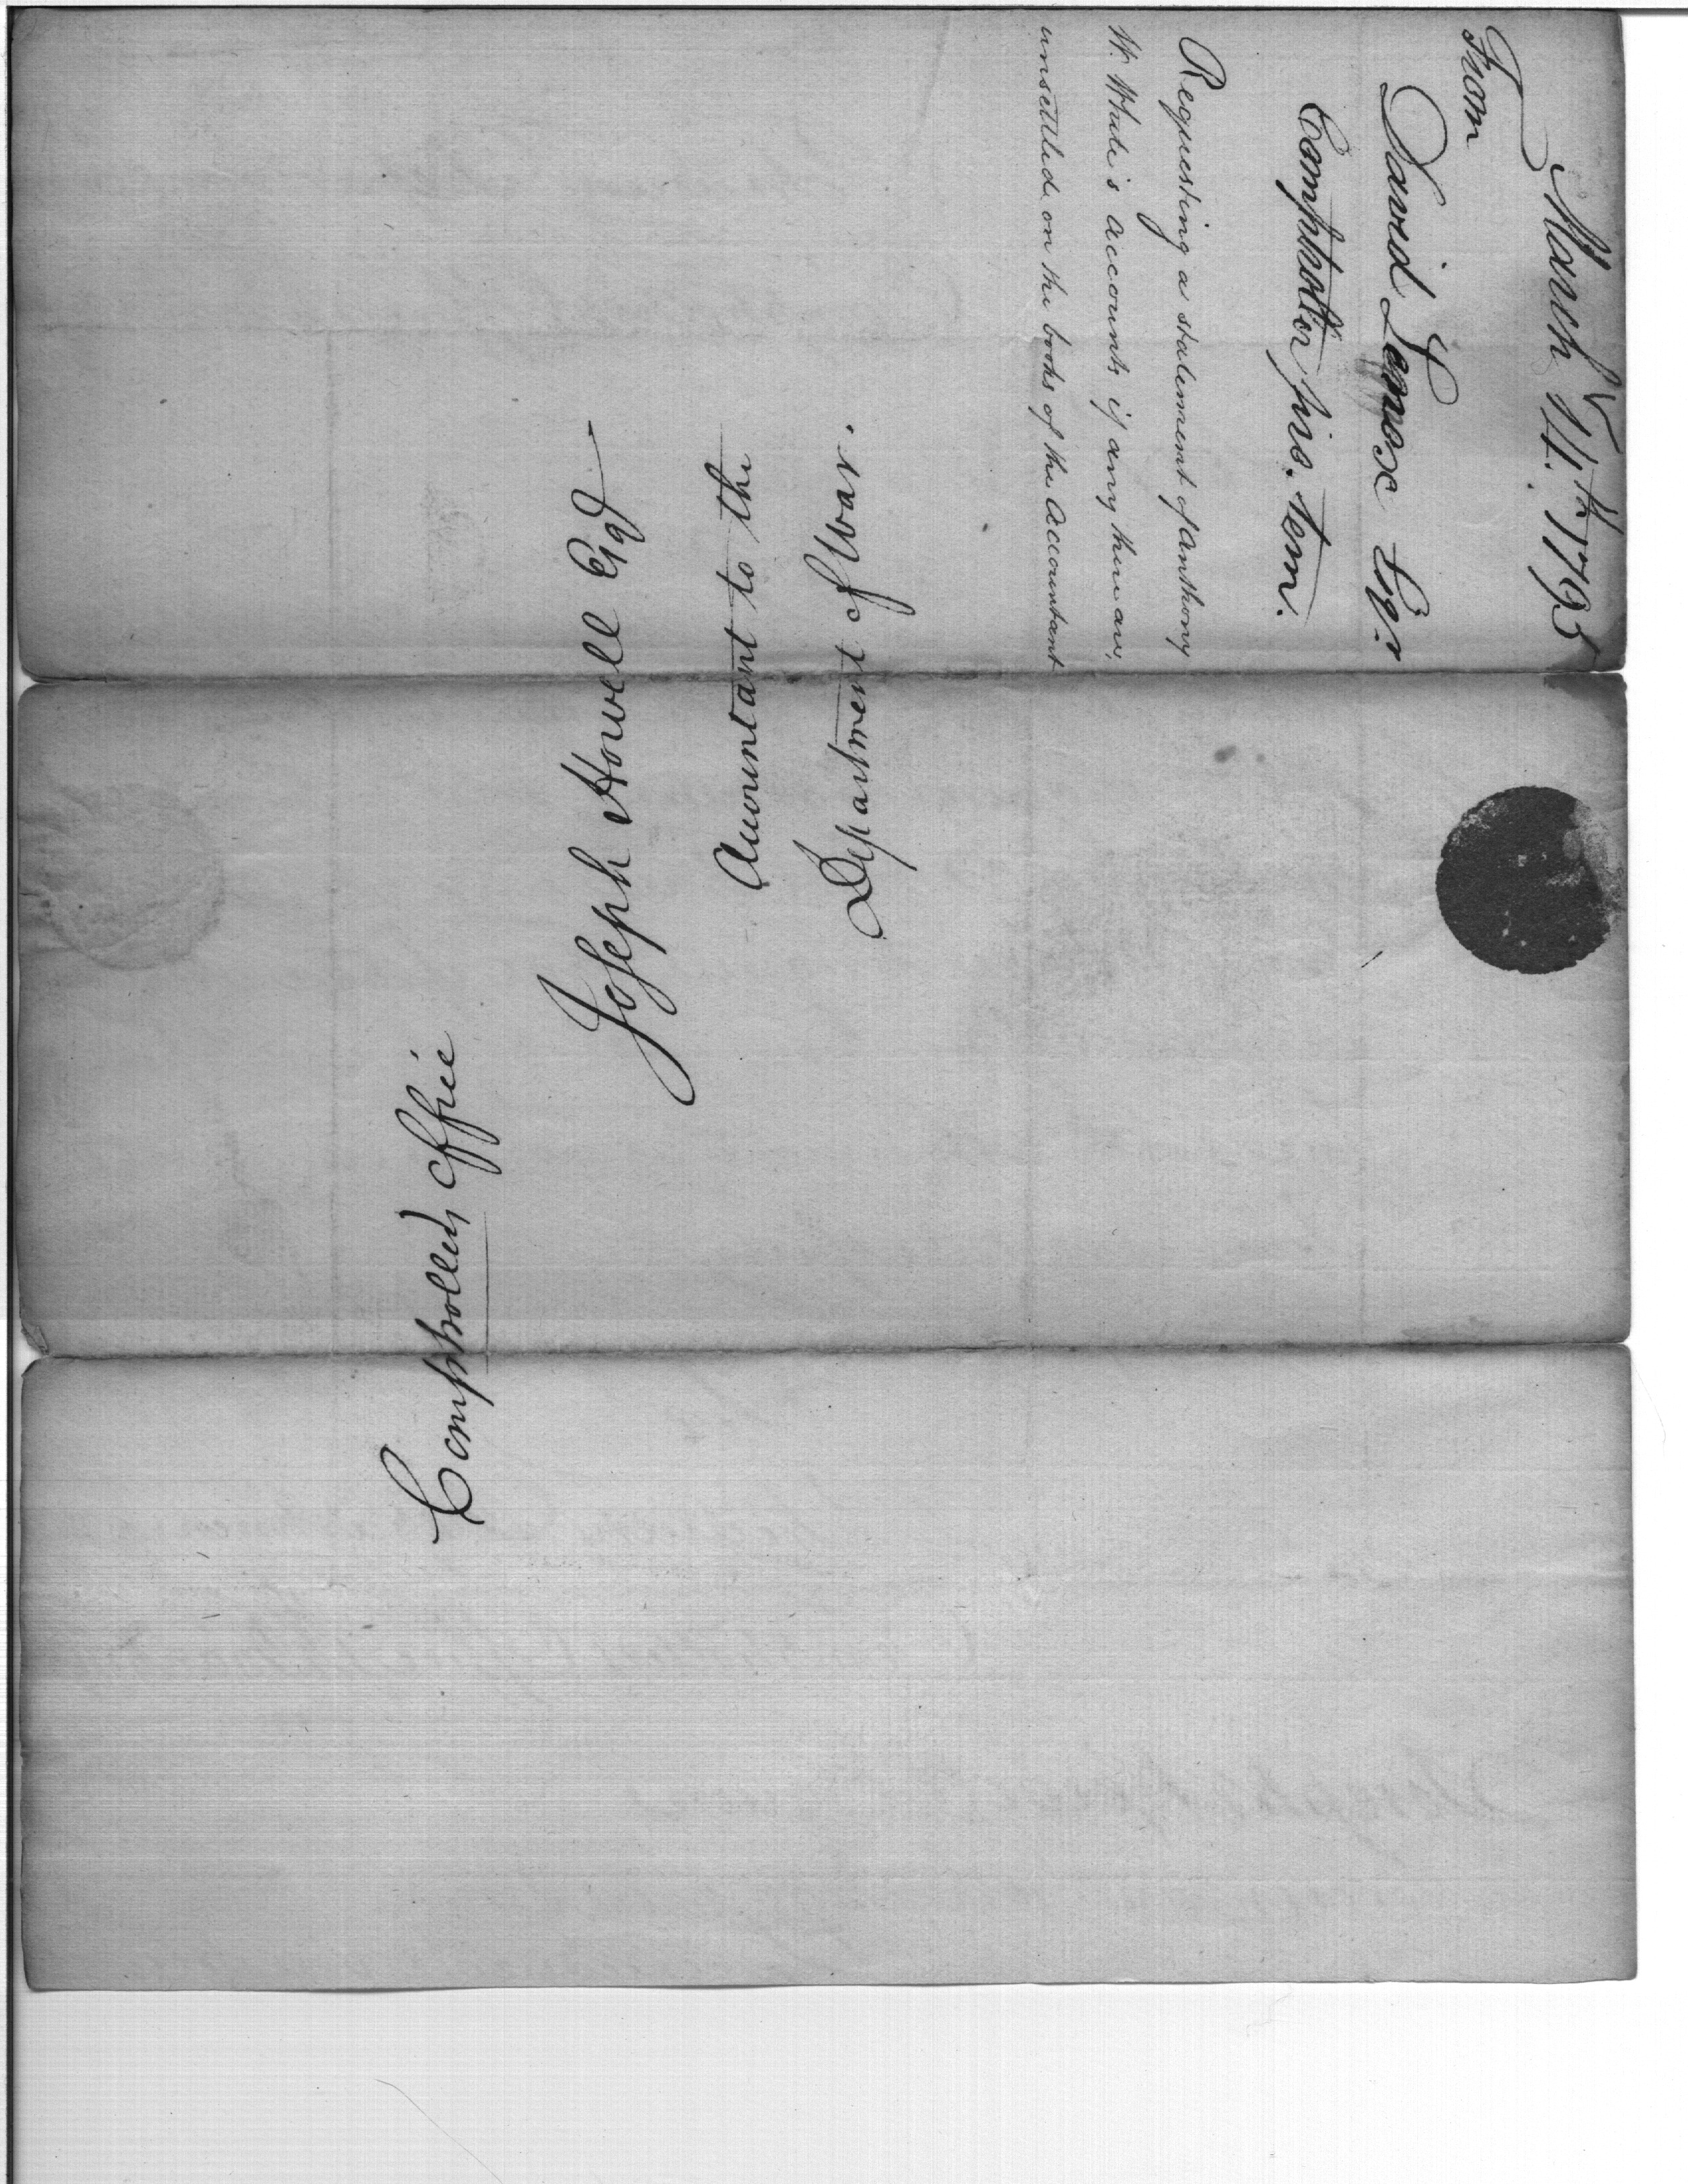 March 14th. 1795
From
David Lenox Esqr
Comptroller pro. tem.
Requesting a statement of Anthony
W. White's accounts if any there are,
unsettled on the books of the Accountant
Joseph Howell Esqr
Accountant to the
Department of War.
Comptrollers Office